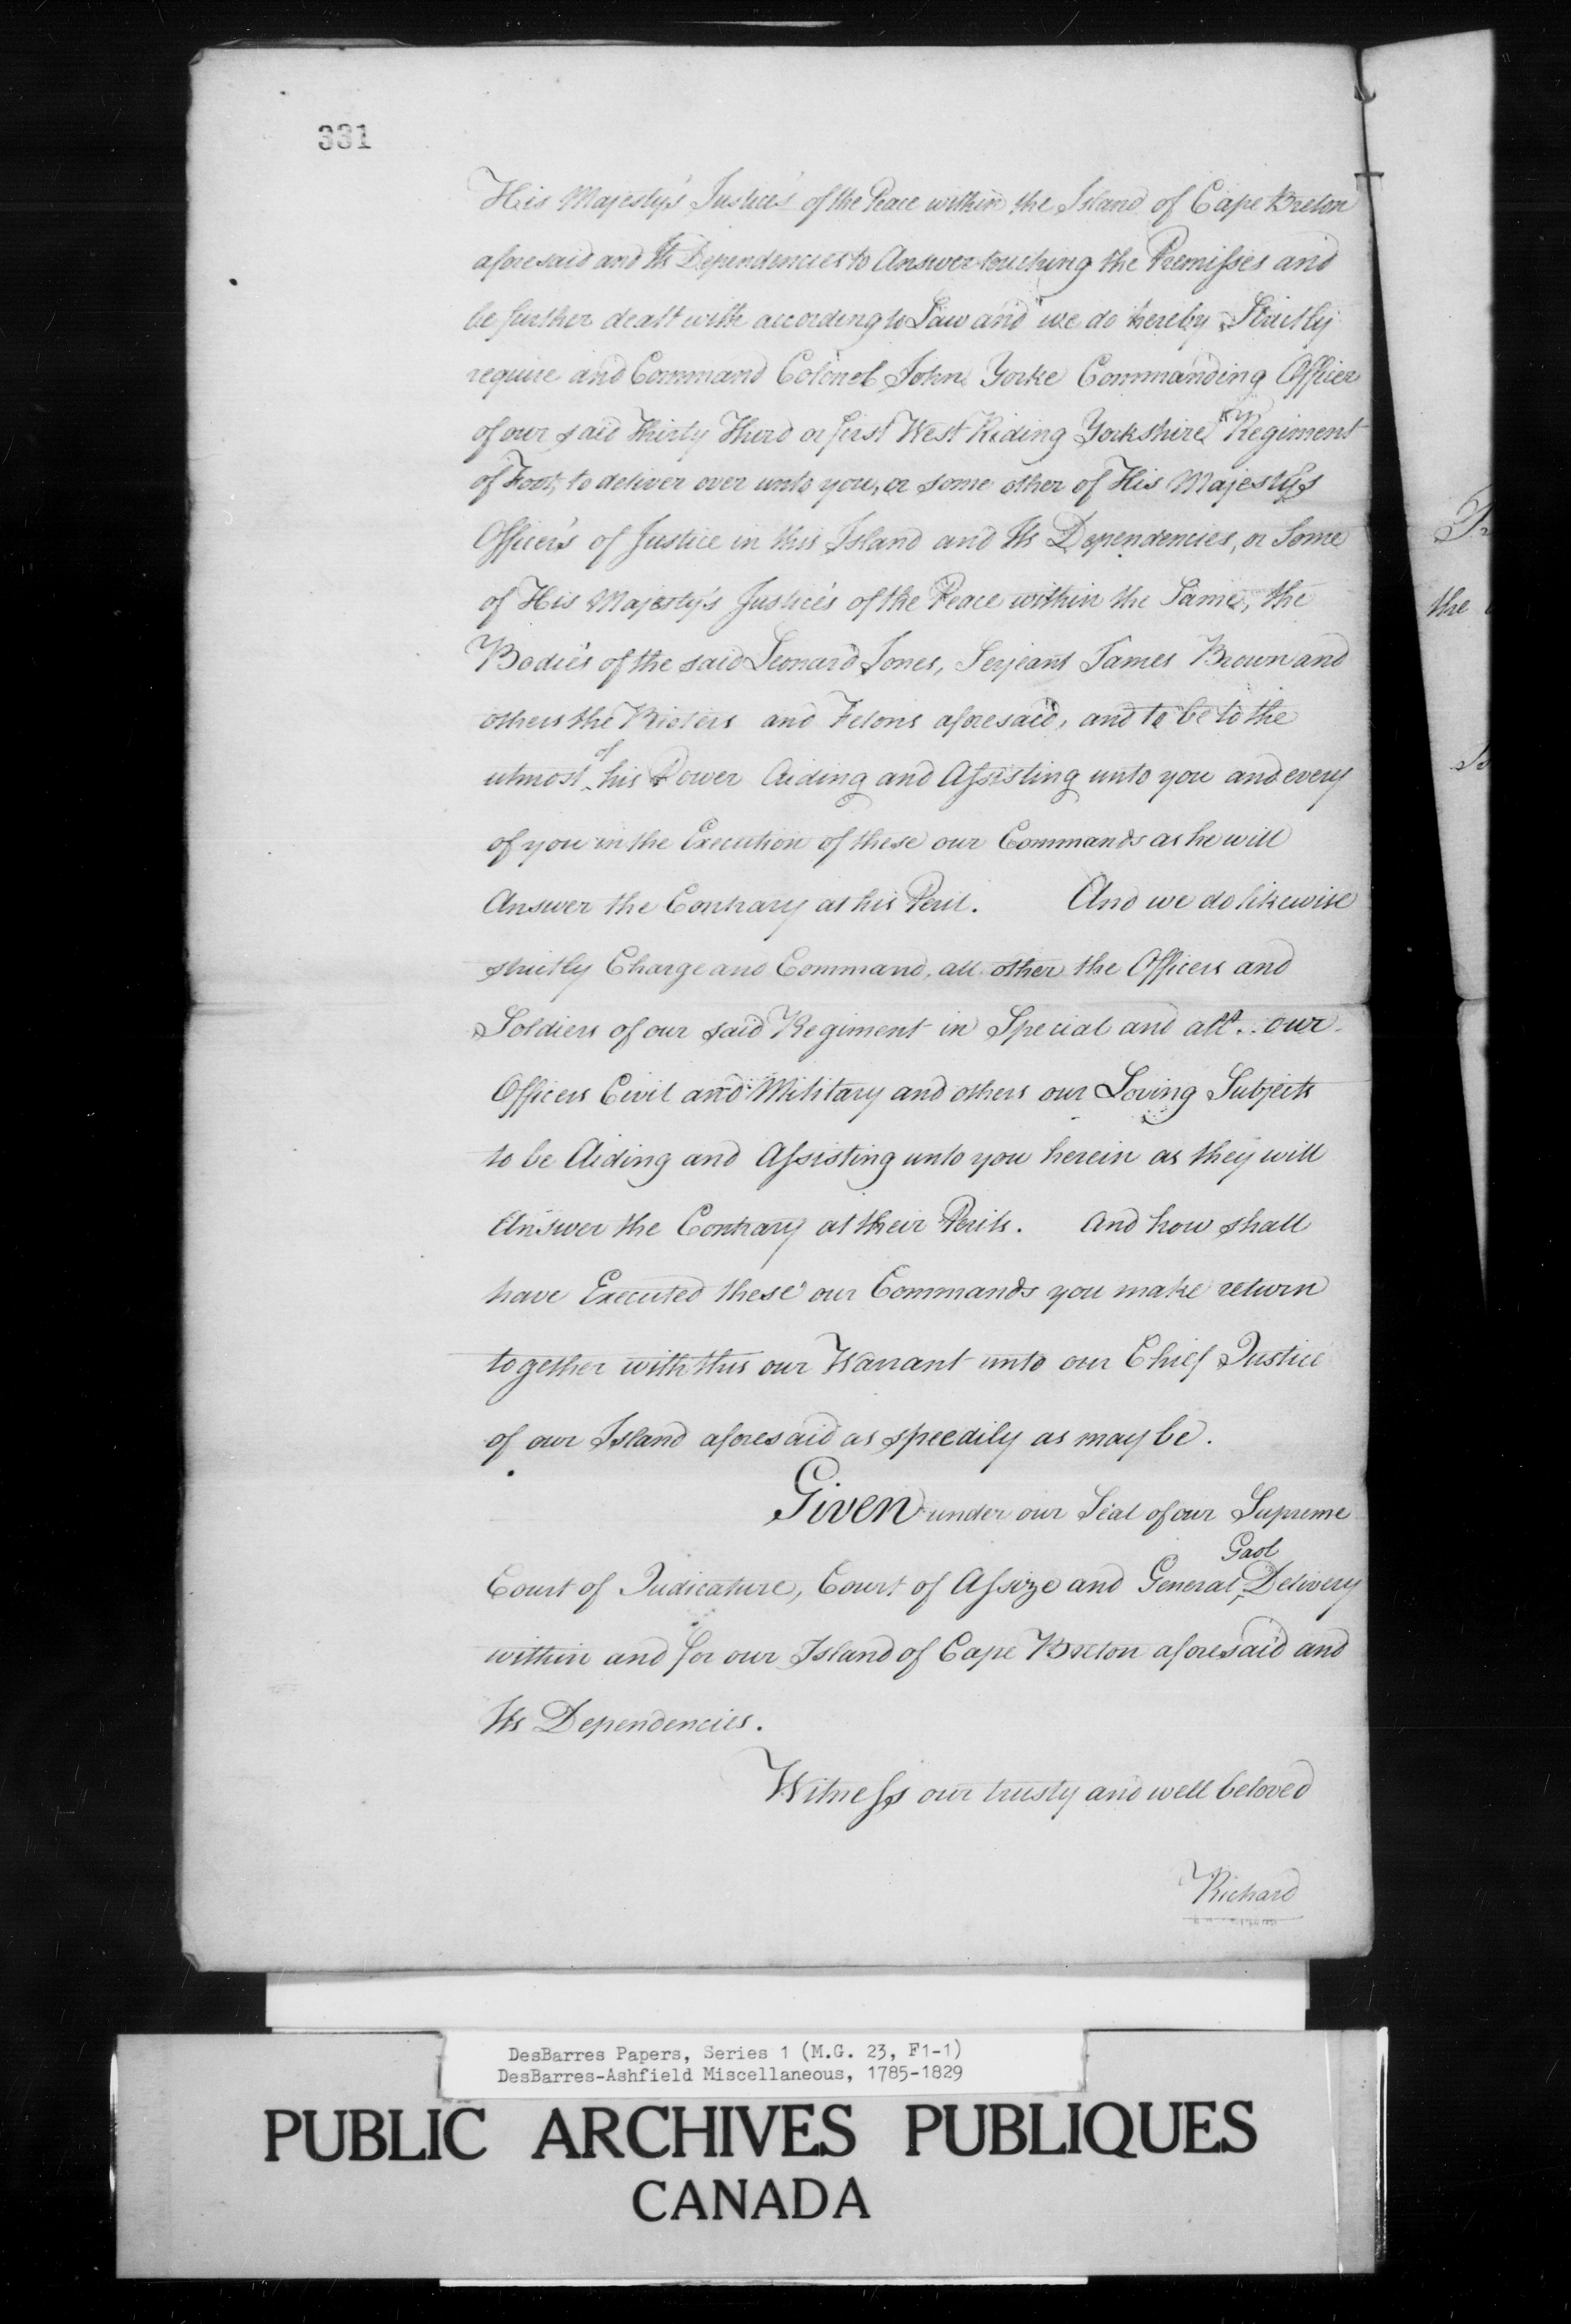 331
His Majesty's Justice's of the Peace within the Island of Cape Breton
aforesaid and Its Dependencies to Answer touching the Premisses and
be further dealt with according to Law and we do hereby Strictly
require and Command Colonel John Yorke Commanding Officer
of our said Thirty Third or first West Riding Yorkshire Regiment
of Foot, to deliver over unto you, or some other of His Majestys
Officer's of Justice in this Island and Its Dependencies, or Some
of His Majesty's Justice's of the Peace within the Same, the
Bodies of the said Leonard Jones, Serjeant James Brown and
others the Rioters and Felons aforesaid, and to be to the
utmost of his Power Aiding and Assisting unto you and every
of you in the Execution of these our Commands as he will
Answer the Contrary at his Peril. And we do likewise
strictly Charge and Command, all other the Officers and
Soldiers of our said Regiment in Special and all our
Officers Civil and Military and others our Loving Subjects
to be Aiding and Assisting unto you herein as they will
Answer the Contrary at their Perils. And how shall
have Executed these our Commands you make return
together with this our Warrant unto our Chief Justice
of our Island aforesaid as speedily as may be.
Given under our Seal of our Supreme
Court of Judicature, Court of Assize and General Gaol Delivery
within and for our Island of Cape Breton aforesaid and
Its Dependencies.
Witness our trusty and well beloved
Richard
the
DesBarres Papers, Series 1 (M.G. 23, F1-1)
DesBarres-Ashfield Miscellaneous, 1785-1829
PUBLIC ARCHIVES PUBLIQUES
CANADA